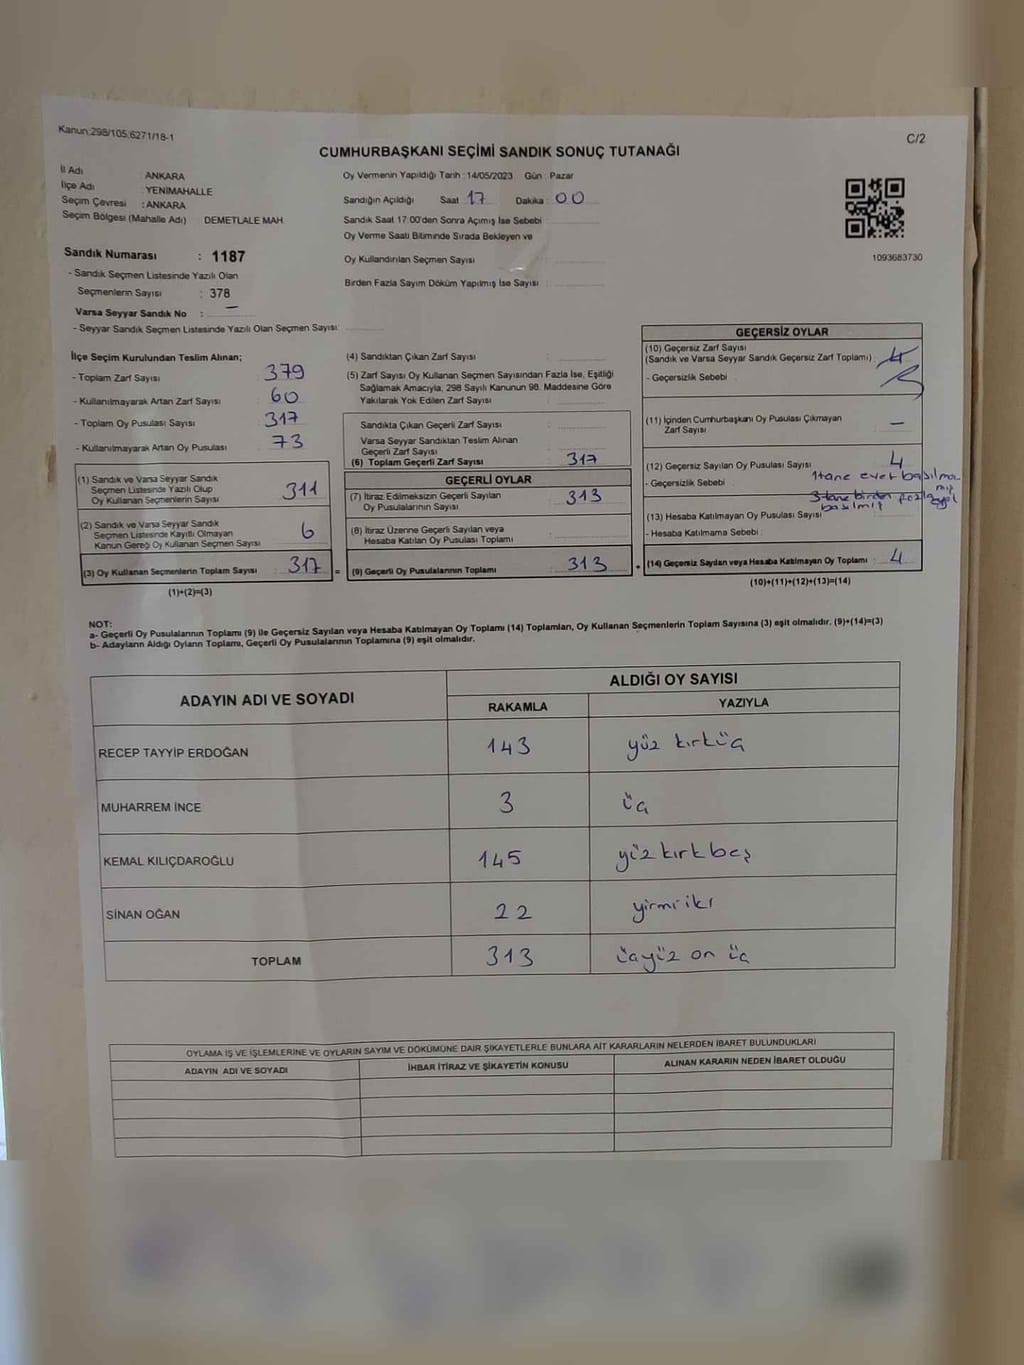 Kanun;298/105;6271/18-1
C/2
CUMHURBAŞKANI SEÇİMİ SANDIK SONUÇ TUTANAĞI
İl Adı ANKARA
İlçe Adı : YENİMAHALLE
Seçim Çevresi : ANKARA
Seçim Bölgesi (Mahalle Adı) DEMETLALE MAH.
Oy Vermenin Yapıldığı Tarih : 14/05/2023 Gün : Pazar
Sandığın Açıldığı Saat 17 Dakika : 00
Sandık Saat 17:00'den Sonra Açımış İse Sebebi
Oy Verme Saati Bitiminde Sırada Bekleyen ve
Oy Kullandırılan Seçmen Sayısı :
Birden Fazla Sayım Döküm Yapılmış İse Sayısı :
1093683730
Sandık Numarası : 1187
- Sandık Seçmen Listesinde Yazılı Olan
Seçmenlerin Sayısı : 378
Varsa Seyyar Sandık No : –
- Seyyar Sandık Seçmen Listesinde Yazılı Olan Seçmen Sayısı:
İlçe Seçim Kurulundan Teslim Alınan;
- Toplam Zarf Sayısı 379
- Kullanılmayarak Artan Zarf Sayısı 60
- Toplam Oy Pusulası Sayısı 317
- Kullanılmayarak Artan Oy Pusulası 73
(1) Sandık ve Varsa Seyyar Sandık
Seçmen Listesinde Yazılı Olup
Oy Kullanan Seçmenlerin Sayısı 311
(2) Sandık ve Varsa Seyyar Sandık
Seçmen Listesinde Kayıtlı Olmayan
Kanun Gereği Oy Kullanan Seçmen Sayısı 6
(3) Oy Kullanan Seçmenlerin Toplam Sayısı : 317 =
(1)+(2)=(3)
(4) Sandıktan Çıkan Zarf Sayısı :
(5) Zarf Sayısı Oy Kullanan Seçmen Sayısından Fazla İse, Eşitliği
Sağlamak Amacıyla, 298 Sayılı Kanunun 98. Maddesine Göre
Yakılarak Yok Edilen Zarf Sayısı :
Sandıkta Çıkan Geçerli Zarf Sayısı :
Varsa Seyyar Sandıktan Teslim Alınan
Geçerli Zarf Sayısı :
(6) Toplam Geçerli Zarf Sayısı 317
GEÇERLİ OYLAR
(7) İtiraz Edilmeksizin Geçerli Sayılan
Oy Pusulalarının Sayısı : 313
(8) İtiraz Üzerine Geçerli Sayılan veya
Hesaba Katılan Oy Pusulası Toplamı :
(9) Geçerli Oy Pusulalarının Toplamı : 313 +
GEÇERSİZ OYLAR
(10) Geçersiz Zarf Sayısı
(Sandık ve Varsa Seyyar Sandık Geçersiz Zarf Toplamı) :
- Geçersizlik Sebebi
(11) İçinden Cumhurbaşkanı Oy Pusulası Çıkmayan
Zarf Sayısı : –
(12) Geçersiz Sayılan Oy Pusulası Sayısı : 4
- Geçersizlik Sebebi 1 tane evet basılma
mış
3 tane birden fazla
basılmış
(13) Hesaba Katılmayan Oy Pusulası Sayısı
- Hesaba Katılmama Sebebi :
(14) Geçersiz Sayılan veya Hesaba Katılmayan Oy Toplamı : 4
(10)+(11)+(12)+(13)=(14)
NOT:
a- Geçerli Oy Pusulalarının Toplamı (9) ile Geçersiz Sayılan veya Hesaba Katılmayan Oy Toplamı (14) Toplamları, Oy Kullanan Seçmenlerin Toplam Sayısına (3) eşit olmalıdır. (9)+(14)=(3)
b- Adayların Aldığı Oyların Toplamı, Geçerli Oy Pusulalarının Toplamına (9) eşit olmalıdır.
ADAYIN ADI VE SOYADI ALDIĞI OY SAYISI
RAKAMLA YAZIYLA
RECEP TAYYİP ERDOĞAN 143 yüz kırküç
MUHARREM İNCE 3 üç
KEMAL KILIÇDAROĞLU 145 yüz kırk beş
SİNAN OĞAN 22 yirmi iki
TOPLAM 313 üçyüz on üç
OYLAMA İŞ VE İŞLEMLERİNE VE OYLARIN SAYIM VE DÖKÜMÜNE DAİR ŞİKAYETLERLE BUNLARA AİT KARARLARIN NELERDEN İBARET BULUNDUKLARI
ADAYIN ADI VE SOYADI İHBAR İTİRAZ VE ŞİKAYETİN KONUSU ALINAN KARARIN NEDEN İBARET OLDUĞU